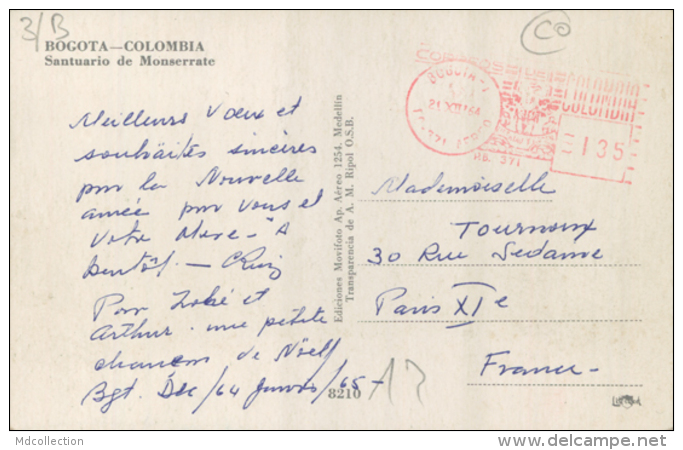 3/B
CO
BOGOTA—COLOMBIA
Santuario de Monserrate
Meilleurs Voeux et
souhaites sincères
pour la Nouvelle
année pour Vous et
Votre Mere - "A
bientôt - CRuiz
Pour et
Arthur une petite
chanson de Noël
Bgt. Dec/64 /65-
8210
Ediciones Movifoto Ap. Aéreo 1254, Medellín
Transparencia de A. M. Ripol O.S.B.
CORREOS DE COLOMBIA
BOGOTA-1
21 XII 64
AEREO
COLOMBIA
COLOMBIA
135
P.B. 371
Mademoiselle
Tournoux
30 Rue Sedaine
Paris XIe
France-
Mdcollection
www.delcampe.net